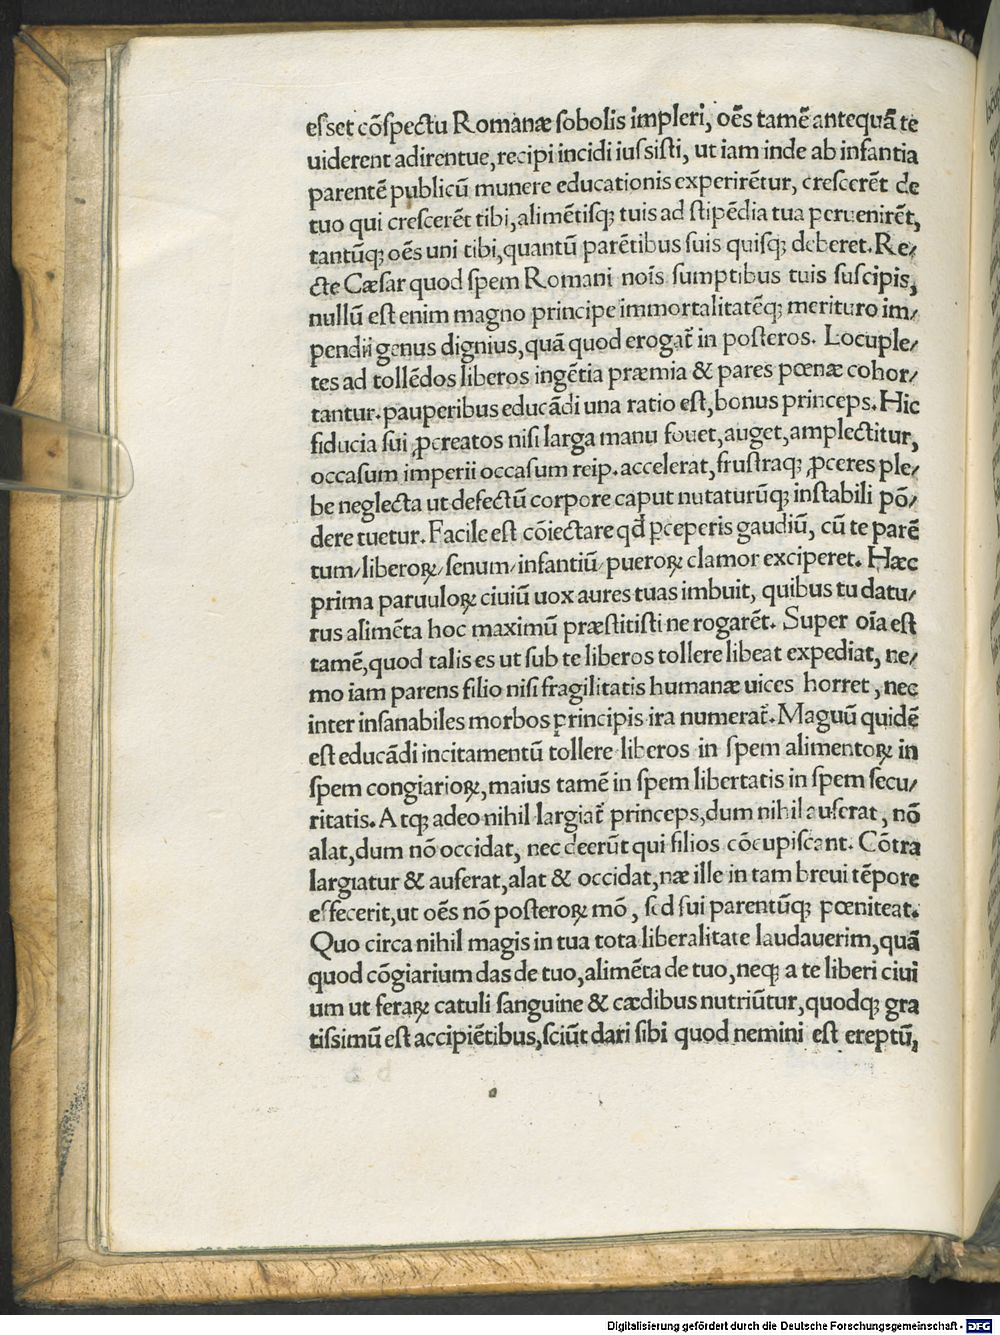 eſset cõſpectu Romanæ ſobolis impleri, oẽs tamẽ antequã te
uiderent adirentue, recipi incidi iuſsiſti, ut iam inde ab infantia
parentẽ publicũ munere educationis experirẽtur, creſcerẽt de
tuo qui creſcerẽt tibi, alimẽtiſqꝫ tuis ad ſtipẽdia tua peruenirẽt,
tantũqꝫ oẽs uni tibi, quantũ parẽtibus ſuis quiſqꝫ deberet. Re/
cte Cæſar quod ſpem Romani noı̃s ſumptibus tuis ſuſcipis,
nullũ eſt enim magno principe immortalitatẽqꝫ merituro im/
pendii genus dignius, quã quod erogat̃ in poſteros. Locuple/
tes ad tollẽdos liberos ingẽtia præmia & pares pœnæ cohor/
tantur. pauperibus educãdi una ratio eſt, bonus princeps. Hic
fiducia ſui ꝓcreatos niſi larga manu fouet, auget, amplectitur,
occaſum imperii occaſum reip. accelerat, fruſtraqꝫ ꝓceres ple/
be neglecta ut defectũ corpore caput nutaturũqꝫ inſtabili põ/
dere tuetur. Facile eſt cõiectare qd̃ ꝑceperis gaudiũ, cũ te parẽ
tum/liberoꝝ/ſenum/infantiũ/pueroꝝ clamor exciperet. Hæc
prima paruuloꝝ ciuiũ uox aures tuas imbuit, quibus tu datu/
rus alimẽta hoc maximũ præſtitiſti ne rogarẽt. Super oı̃a eſt
tamẽ, quod talis es ut ſub te liberos tollere libeat expediat, ne/
mo iam parens filio niſi fragilitatis humanæ uices horret, nec
inter inſanabiles morbos principis ira numerat̃. Maguũ quidẽ
eſt educãdi incitamentũ tollere liberos in ſpem alimentoꝝ in
ſpem congiarioꝝ, maius tamẽ in ſpem libertatis in ſpem ſecu/
ritatis. Atqꝫ adeo nihil largiat̃ princeps, dum nihil auferat, nõ
alat, dum nõ occidat, nec deerũt qui filios cõcupiſcant. Cõtra
largiatur & auferat, alat & occidat, næ ille in tam breui tẽpore
effecerit, ut oẽs nõ poſteroꝝ mõ, ſed ſui parentũqꝫ pœniteat.
Quo circa nihil magis in tua tota liberalitate laudauerim, quã
quod cõgiarium das de tuo, alimẽta de tuo, neqꝫ a te liberi ciui
um ut feraꝝ catuli ſanguine & cædibus nutriũtur, quodqꝫ gra
tiſsimũ eſt accipiẽtibus, ſciũt dari ſibi quod nemini eſt ereptũ,
Digitalisierung gefördert durch die Deutsche Forschungsgemeinschaft - DFG